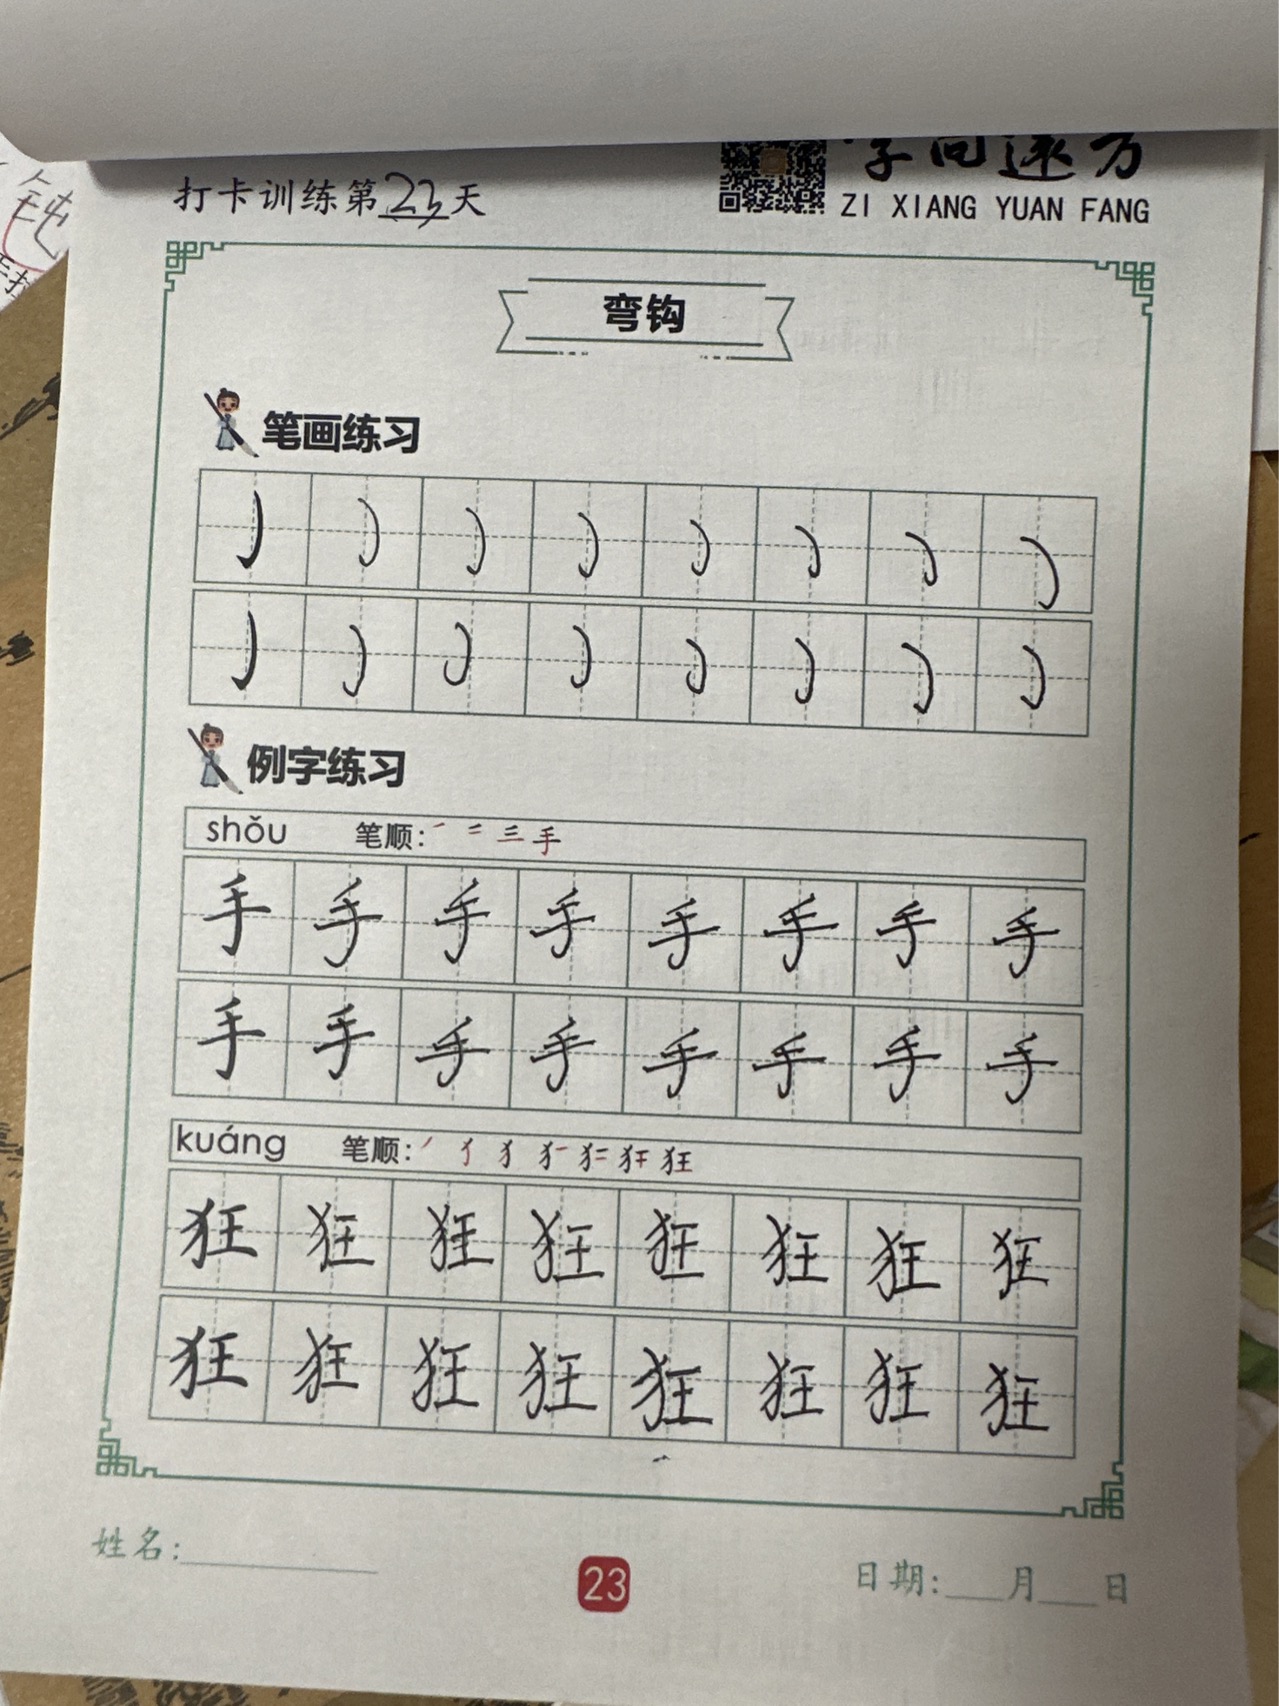 字向远方
ZI XIANG YUAN FANG
打卡训练第23天
弯钩
笔画练习
例字练习
shǒu 笔顺: 一 二 三 手
手 手 手 手 手 手 手 手
手 手 手 手 手 手 手 手
kuáng 笔顺: 狂
狂 狂 狂 狂 狂 狂 狂 狂
狂 狂 狂 狂 狂 狂 狂 狂
姓名:
23
日期: 月 日